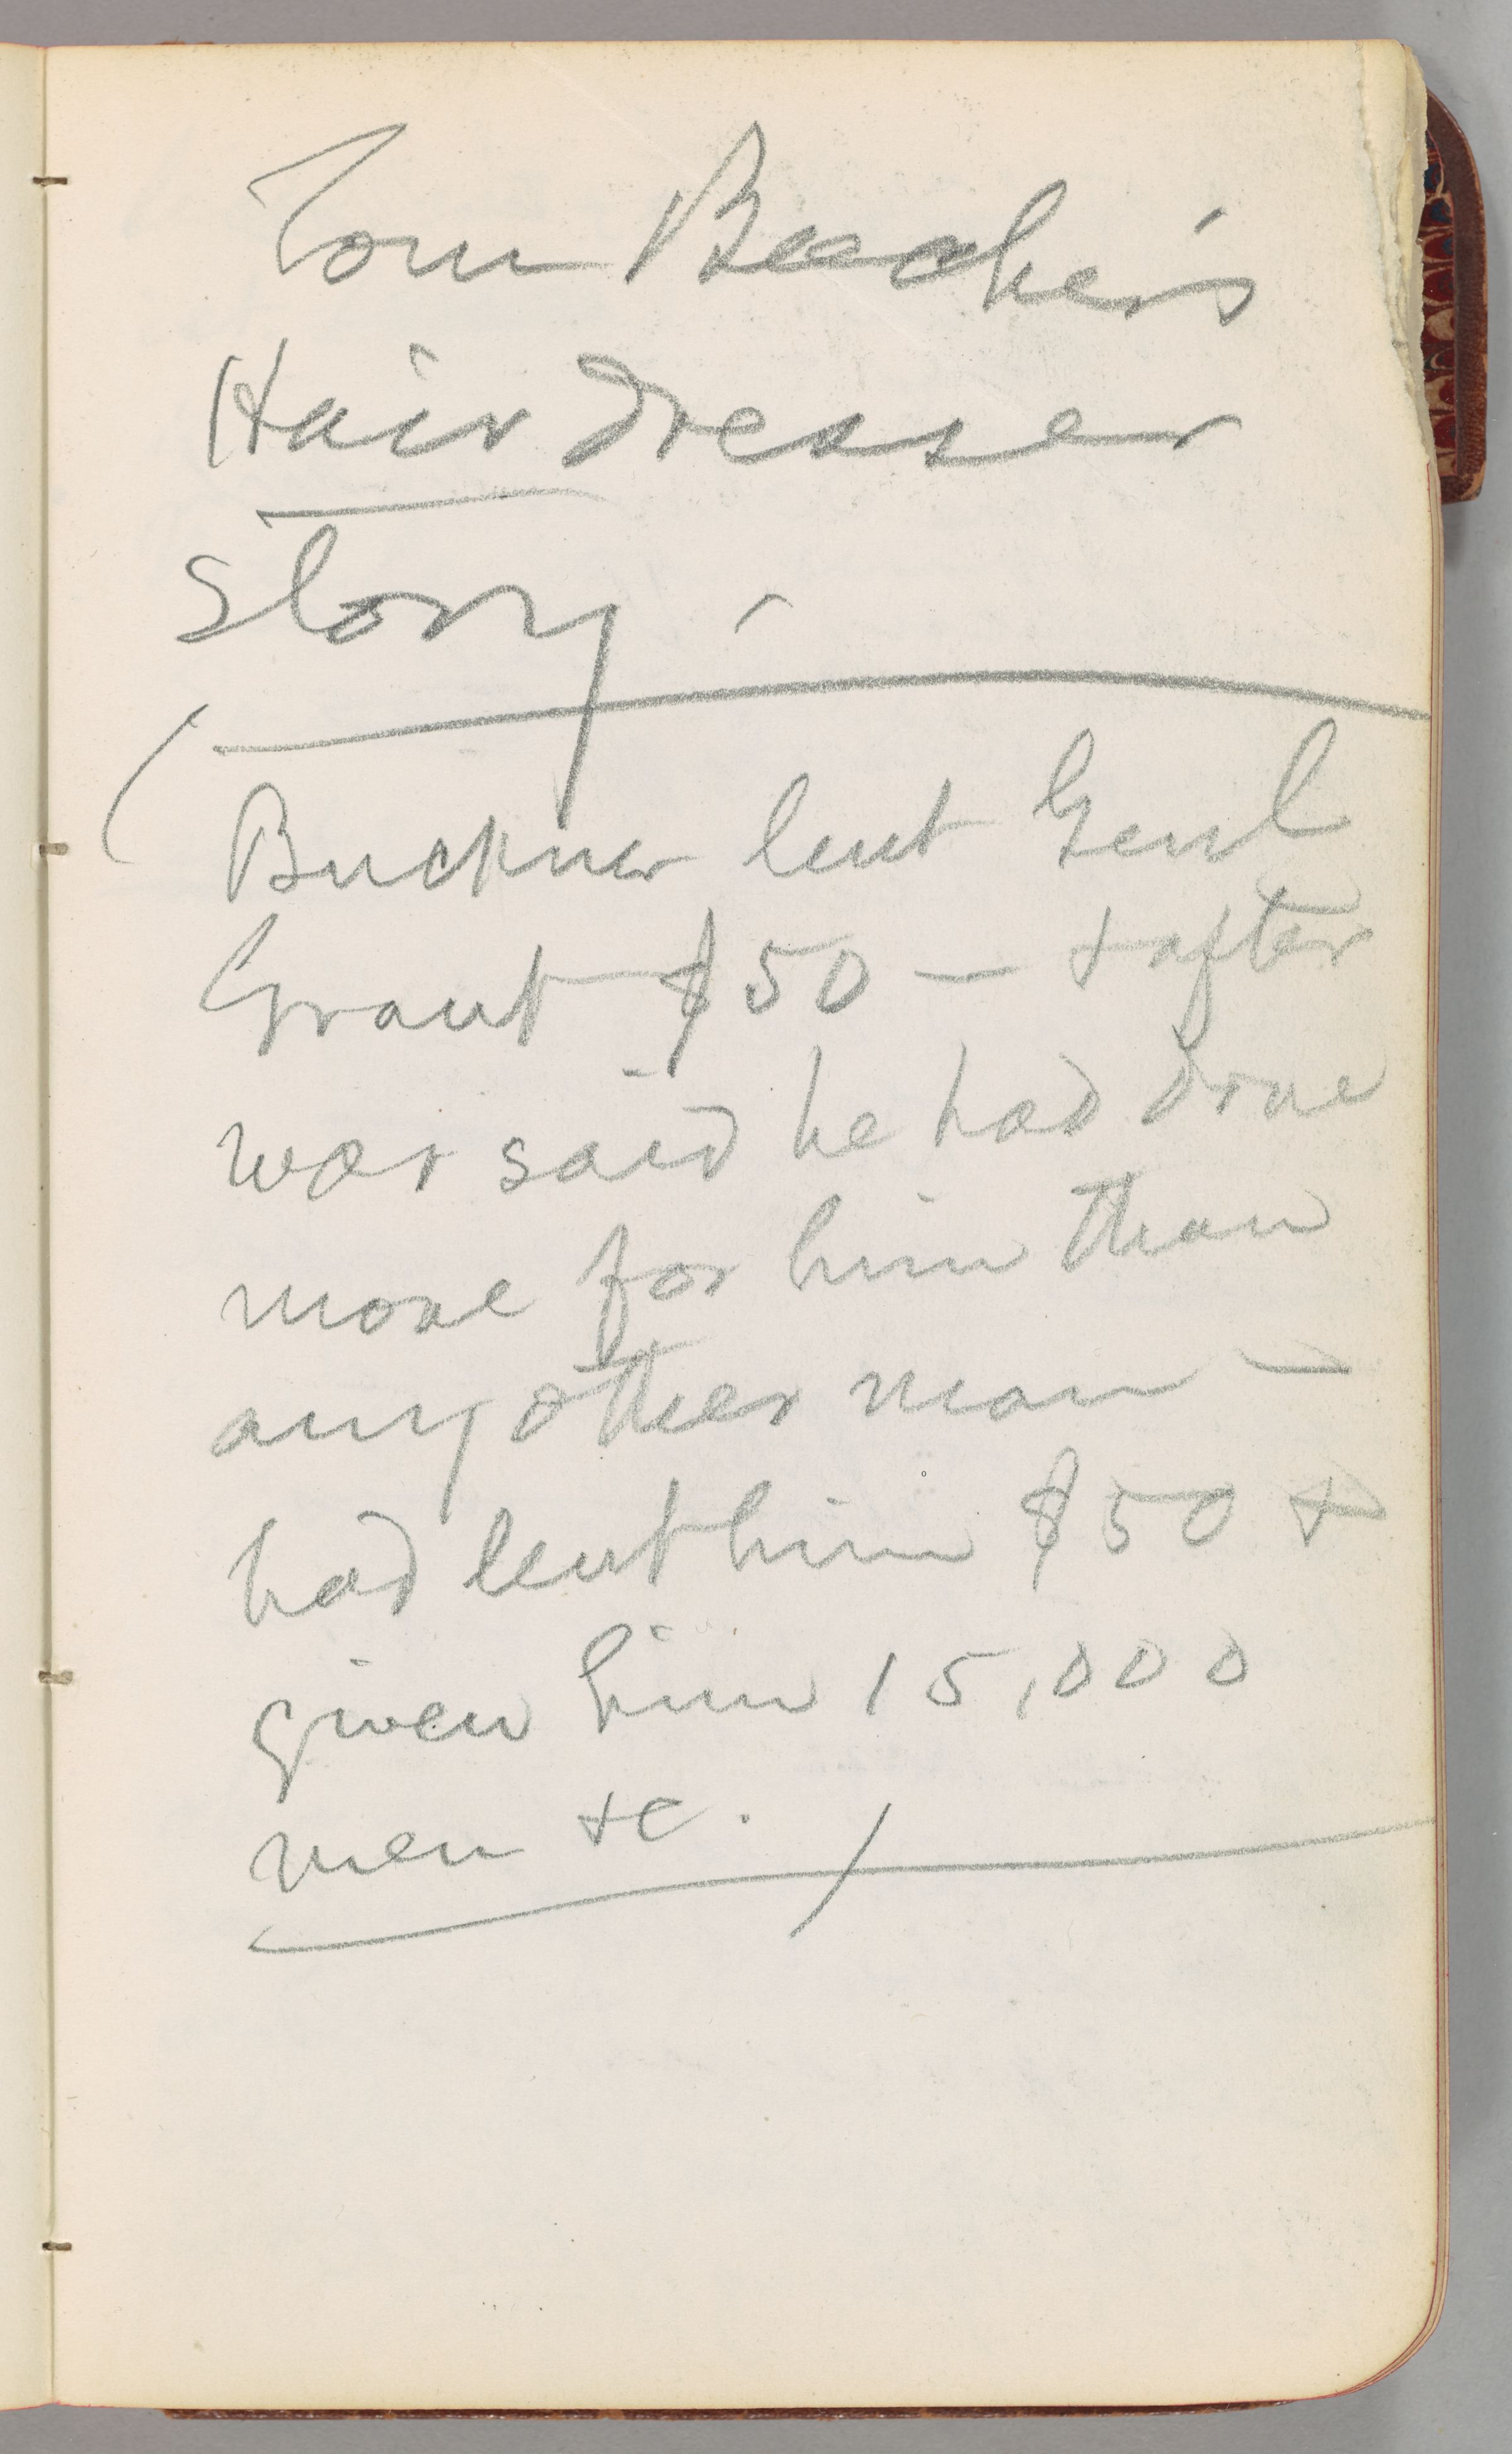 Tom Beecher's
Hair dresser
Story.
(Buckner lent Genl
Grant $50 — & after
war said he had done
more for him than
any other man —
had lent him $50 &
given him 15,000
men &c. )